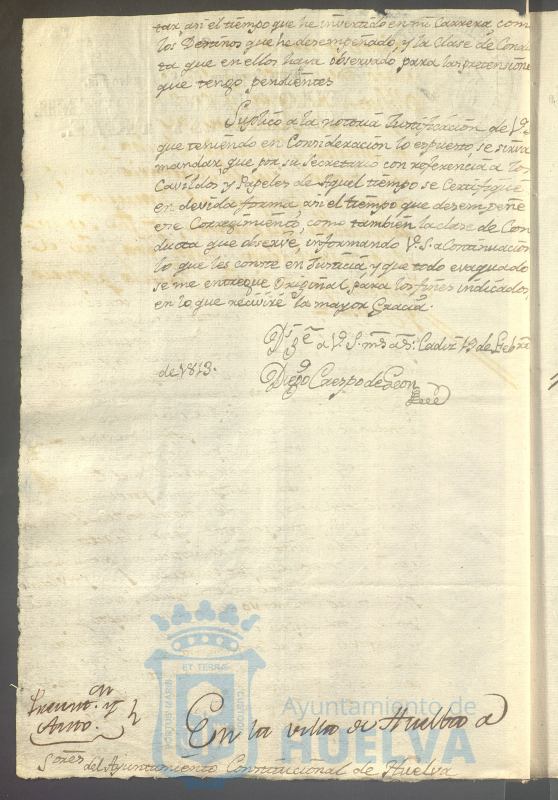 tar, asi el tiempo que he invertido en mi Carrera, como
los Destinos que he desempeñado, y la Clase de Conduc
ta que en ellos haya observado para las pretensiones
que tengo pendientes
Suplico a la notoria Justificacion de V. S.
que teniendo en Consideracion lo espuesto, se sirva
mandar, que por su Secretario con referencia a los
Cavildos, y Papeles de aquel tiempo se Certifique
en devida forma, asi el tiempo que desempeñe
ese Corregimiento, como tambien la clase de Con
ducta que observé, informando V. S. a Continuacion
lo que les conste en Justicia, y que todo evaquado
se me entregue Original para los fines indicados,
en lo que recivire la mayor Gracia.
a V. S. ms. as. Cadiz 19 de Febro
de 1813.
Diego Crespo de Leon
En la villa de Huelba a
Sores del Ayuntamiento Constitucional de Huelva
PORTUS MARIS ET TERRAE CUSTODIA
Ayuntamiento de
HUELVA